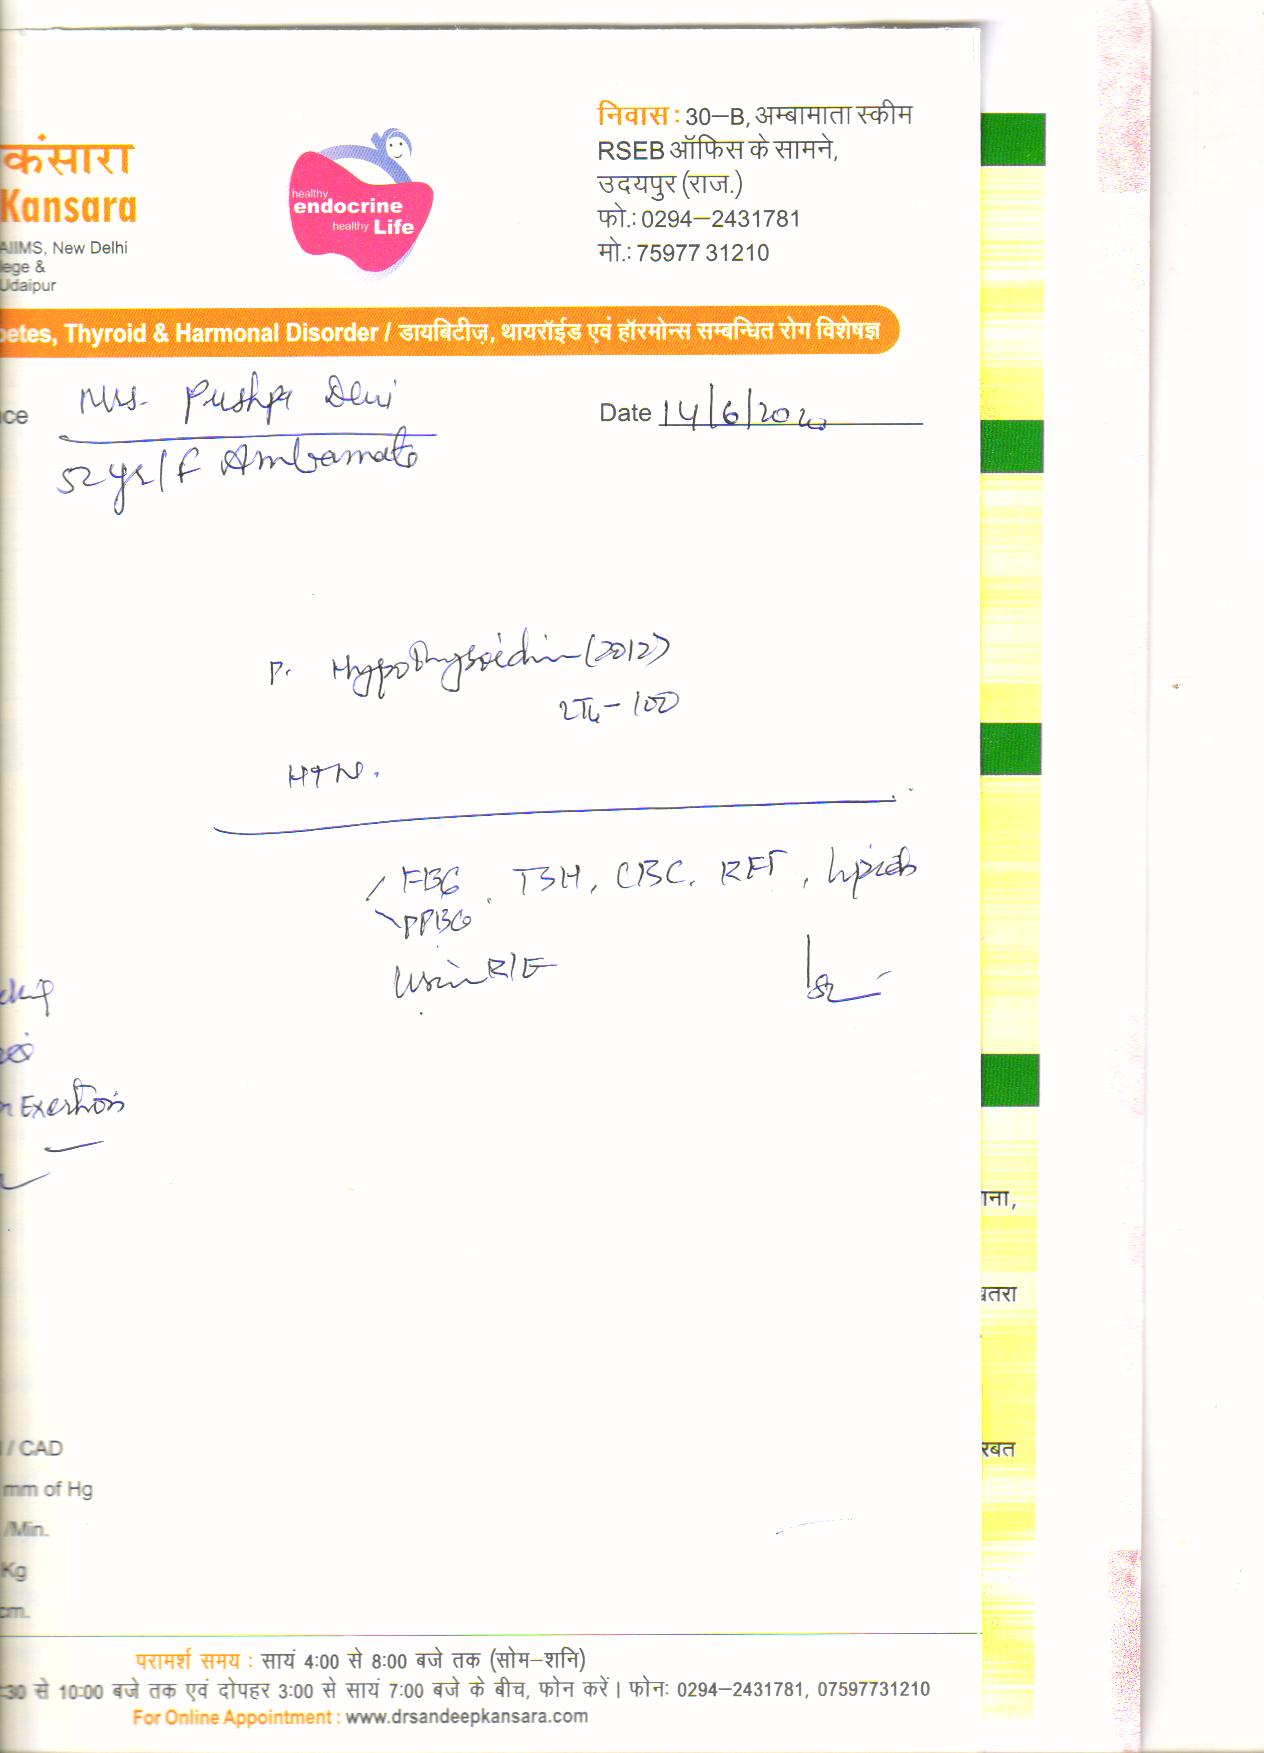 कंसारा
Kansara
AIIMS, New Delhi
lege &
Udaipur
healthy
endocrine
healthy Life
निवास : 30–B, अम्बामाता स्कीम
RSEB ऑफिस के सामने,
उदयपुर (राज.)
फो.: 0294–2431781
मो.: 75977 31210
betes, Thyroid & Harmonal Disorder / डायबिटीज़, थायरॉईड एवं हॉरमोन्स सम्बन्धित रोग विशेषज्ञ
ce Mrs. Pushpa Devi
Date 14/6/2020
52 yr/F Ambamata
P. Hypothyroidism (2012)
- 100
HTN.
FBG, TSH, CBC, RFT, Lipids
PPBG
Urine R/E
n Exertion
/ CAD
mm of Hg
/Min.
Kg
cm.
ाना,
खतरा
रबत
परामर्श समय : सायं 4:00 से 8:00 बजे तक (सोम–शनि)
:30 से 10:00 बजे तक एवं दोपहर 3:00 से सायं 7:00 बजे के बीच, फोन करें। फोनः 0294–2431781, 07597731210
For Online Appointment : www.drsandeepkansara.com